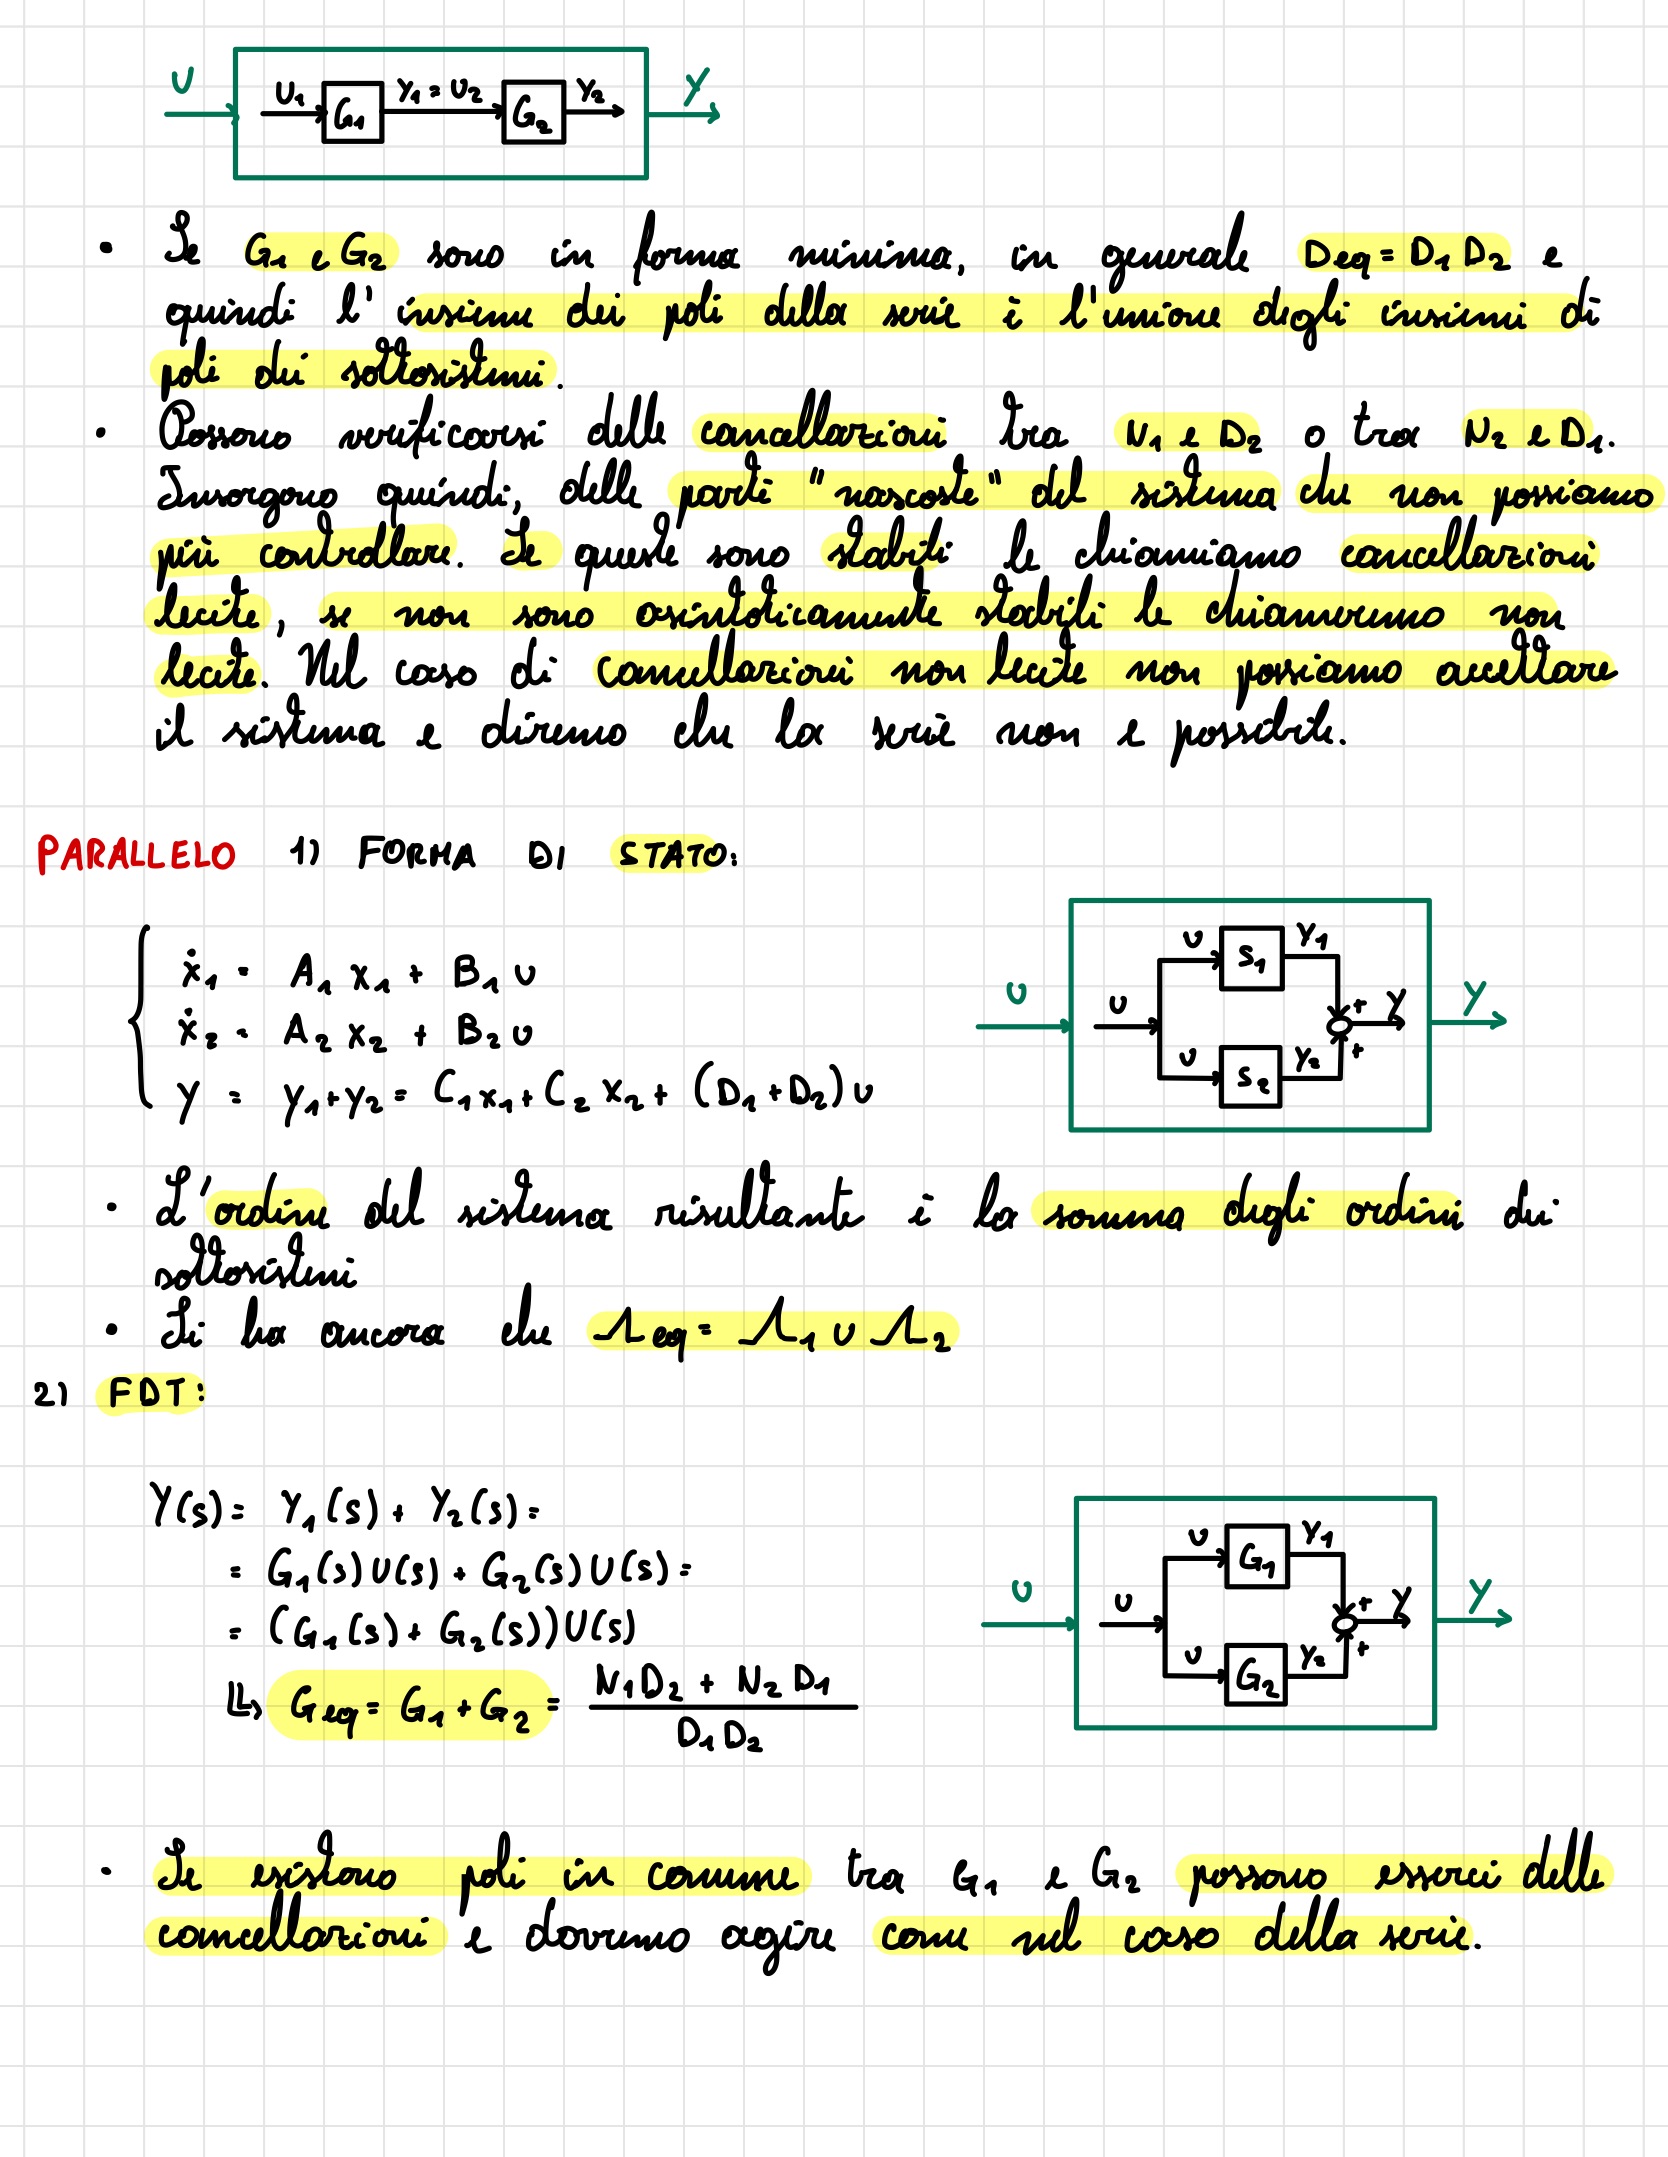 U U₁ G₁ Y₁ = U₂ G₂ Y₂ Y
• Se G₁ e G₂ sono in forma minima, in generale Deq = D₁ D₂ e
quindi l'insieme dei poli della serie è l'unione degli insiemi di
poli dei sottosistemi.
• Possono verificarsi delle cancellazioni tra N₁ e D₂ o tra N₂ e D₁.
Insorgono quindi, delle parti "nascoste" del sistema che non possiamo
più controllare. Se queste sono stabili le chiamiamo cancellazioni
lecite, se non sono asintoticamente stabili le chiameremo non
lecite. Nel caso di cancellazioni non lecite non possiamo accettare
il sistema e diremo che la serie non e possibile.
PARALLELO 1) FORMA DI STATO:
ẋ₁ = A₁ x₁ + B₁ u
ẋ₂ = A₂ x₂ + B₂ u
y = y₁ + y₂ = C₁ x₁ + C₂ x₂ + (D₁ + D₂) u
u S₁ Y₁
U u + Y Y
u S₂ Y₂ +
• L'ordine del sistema risultante è la somma degli ordini dei
sottosistemi
• Si ha ancora che Λeq = Λ₁ ∪ Λ₂
2) FDT:
Y(s) = Y₁(s) + Y₂(s) =
= G₁(s) U(s) + G₂(s) U(s) =
= (G₁(s) + G₂(s)) U(s)
↳ Geq = G₁ + G₂ = (N₁ D₂ + N₂ D₁) / (D₁ D₂)
u G₁ Y₁
U u + Y Y
u G₂ Y₂ +
• Se esistono poli in comune tra G₁ e G₂ possono esserci delle
cancellazioni e dovremo agire come nel caso della serie.